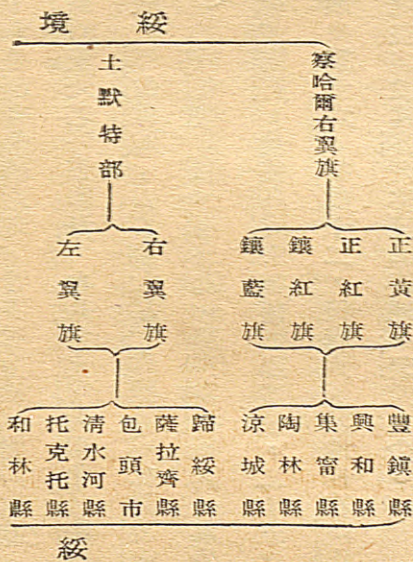 綏境
察哈爾右翼旗
正黃旗
正紅旗
鑲紅旗
鑲藍旗
豐鎮縣
興和縣
集甯縣
陶林縣
涼城縣
土默特部
右翼旗
左翼旗
歸綏縣
薩拉齊縣
包頭市
清水河縣
托克托縣
和林縣
綏